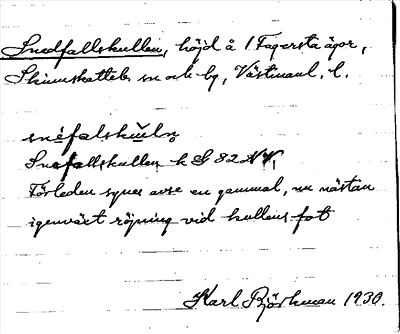 Snedfallskullen, höjd å 1 Fagersta ägor,
Skinnskattebs sn och bg, Västmanl. l.
snéfalskuln̥
Snefallskullen k G 82 NV,
Förleden synes avse en gammal, nu nästan
igenväxt röjning vid kullens fot
Karl Björkman 1930.